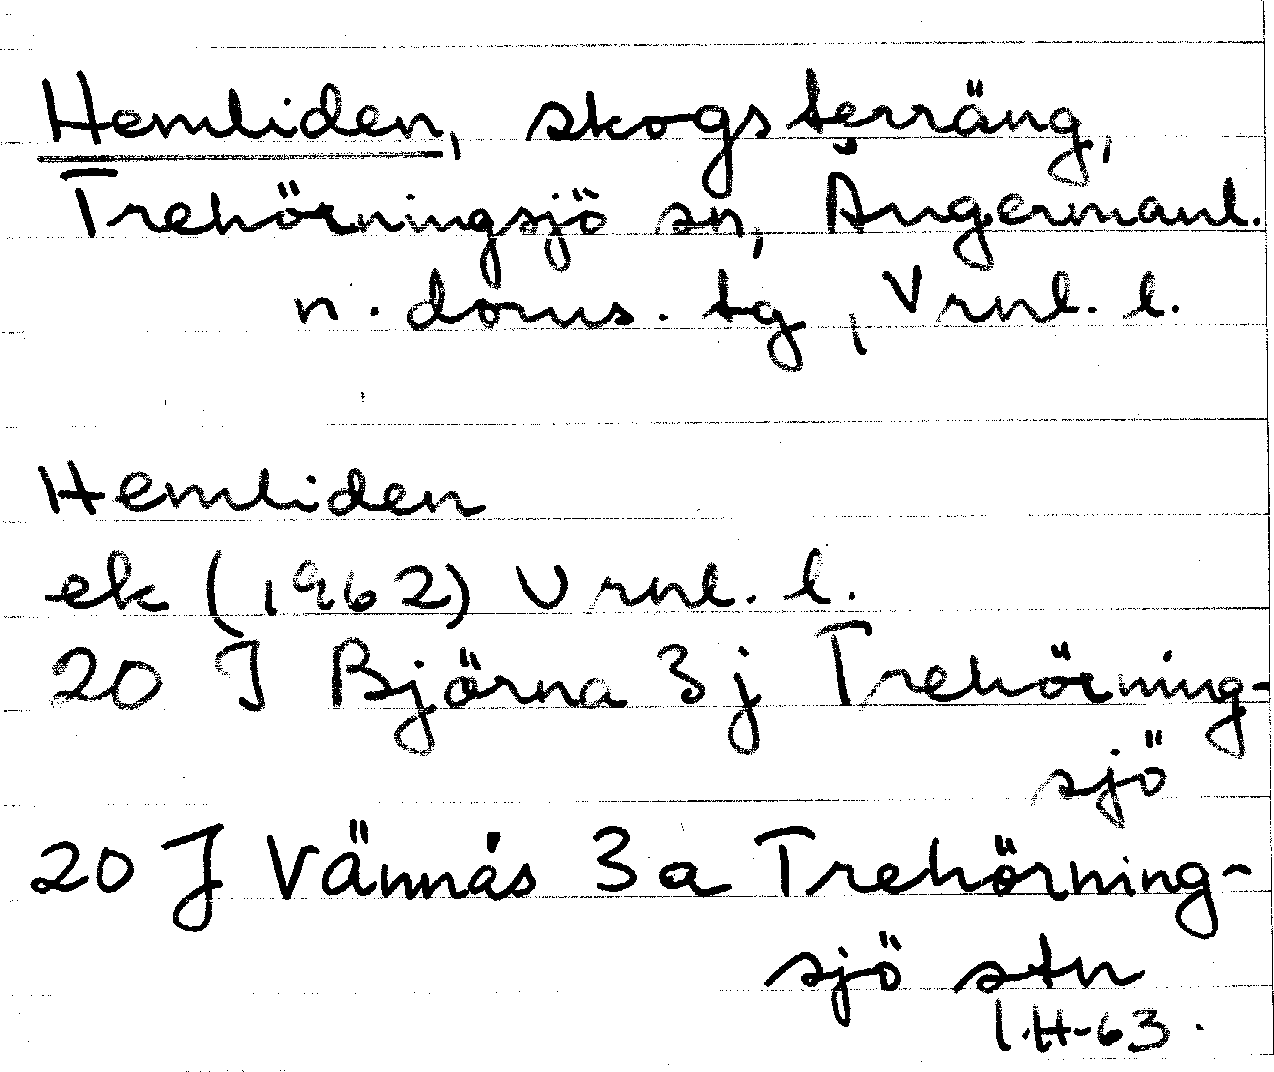 Hemliden, skogsterräng,
Trehörningsjö sn, Ångermanl.
n. doms. tg, Vrnl. l.
Hemliden
ek (1962) Vrnl. l.
20 J Björna 3 j Trehörning-
sjö
20 J Vännäs 3 a Trehörning-
sjö stn
I.H-63.